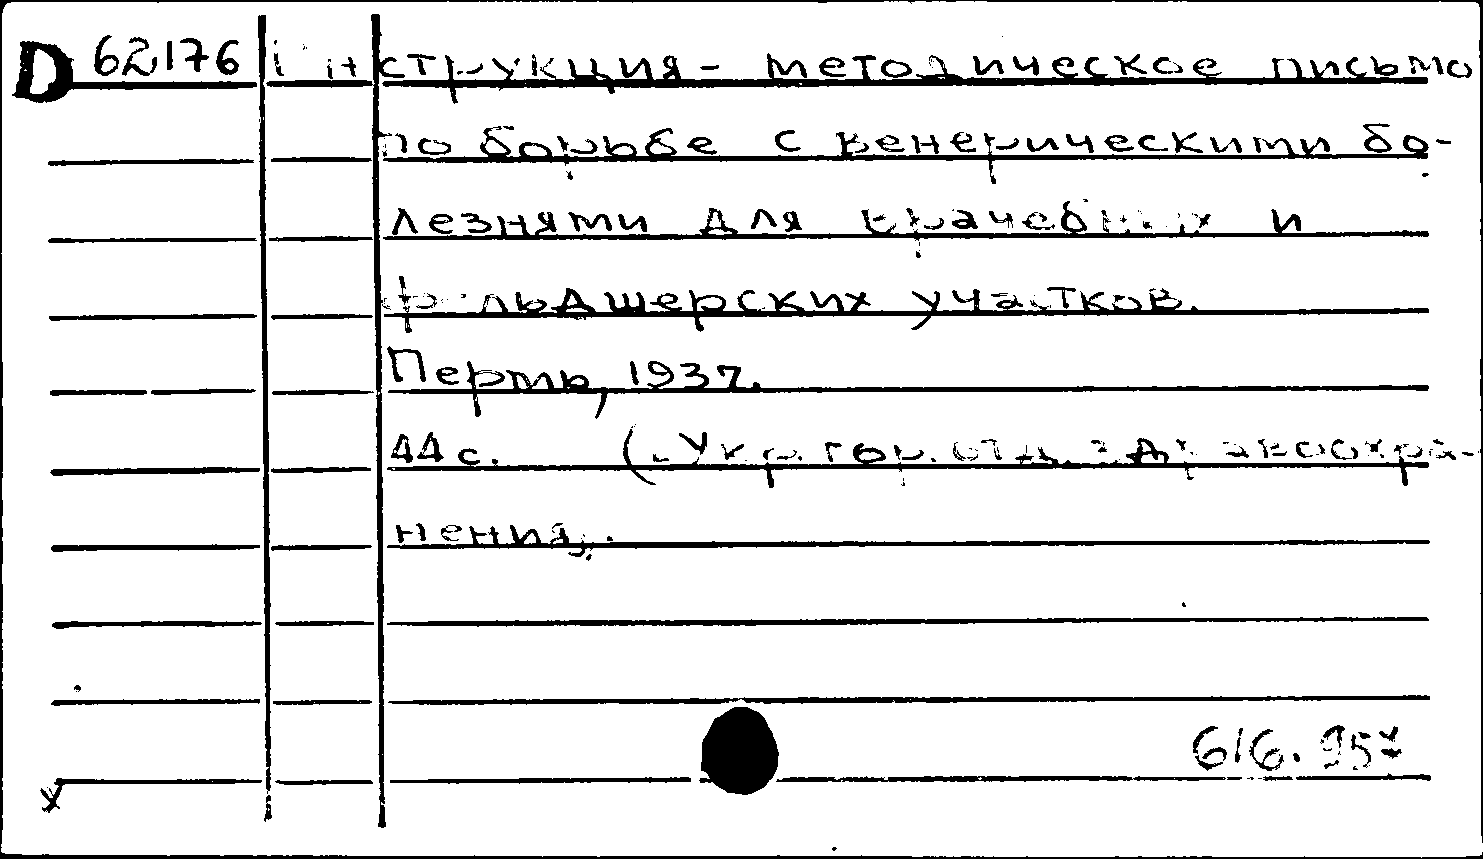 D 62176 Инструкция - методическое письмо
по борьбе с венерическими бо-
лезнями для врачебных и
фельдшерских участков.
Пермь, 1937.
44 с. (Укр. гор. отд. здравоохра-
нения).
616.957
x